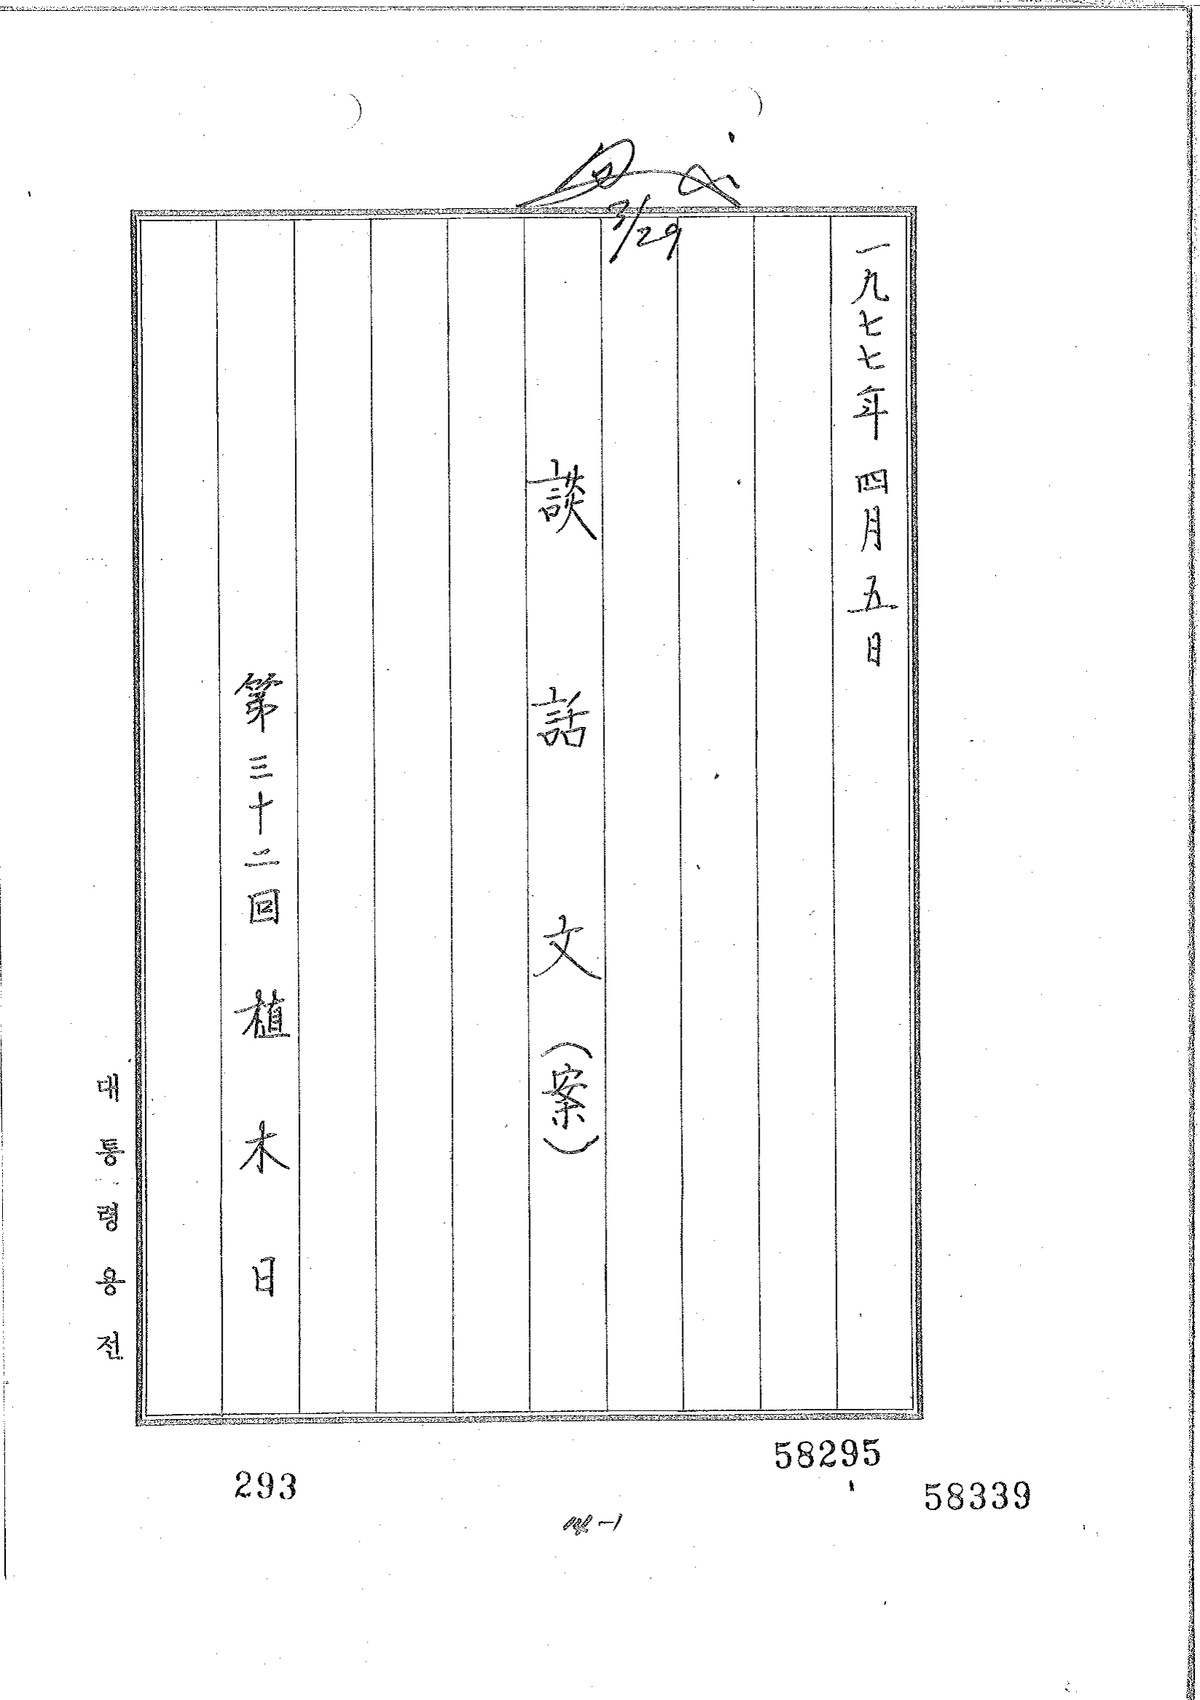 3/29
一九七七年 四月 五日
談話文(案)
第三十二回 植木日
대통령용전
58295
293
58339